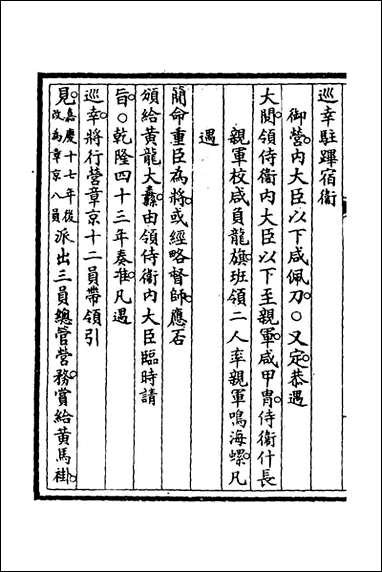 巡幸駐蹕宿衞
御營內大臣以下咸佩刀○又定恭遇
大閱領侍衞內大臣以下至親軍咸甲冑侍衞什長
親軍校咸負龍旗班領二人率親軍鳴海螺凡
遇
簡命重臣為將或經略督師應石
頒給黃龍大纛由領侍衞內大臣臨時請
旨○乾隆四十三年奏准凡遇
巡幸將行營章京十二員帶領引
見嘉慶十七年後改為章京八員派出三員總管營務賞給黃馬褂